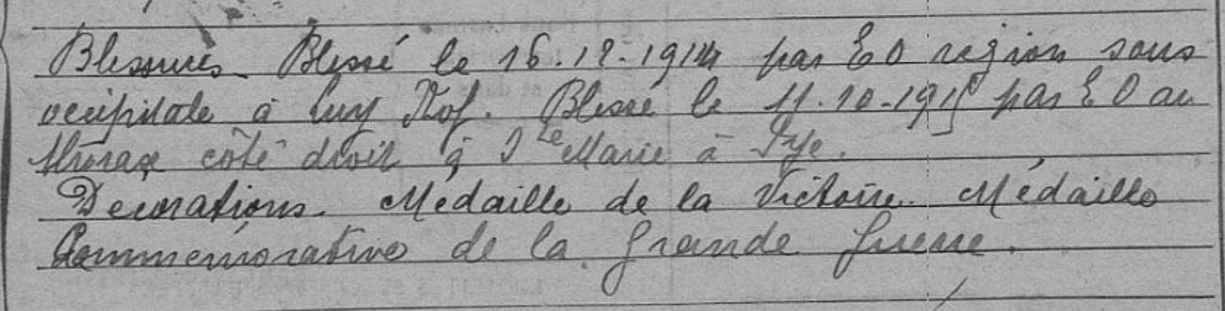 Blessures. Blessé le 16.12.1914 par E O région sous
occipitale à Luy Hof. Blessé le 11.10.1915 par E O au
thorax côté droit à Ste Marie à Pye.
Décorations. Médaille de la Victoire. Médaille
Commémorative de la Grande Guerre.